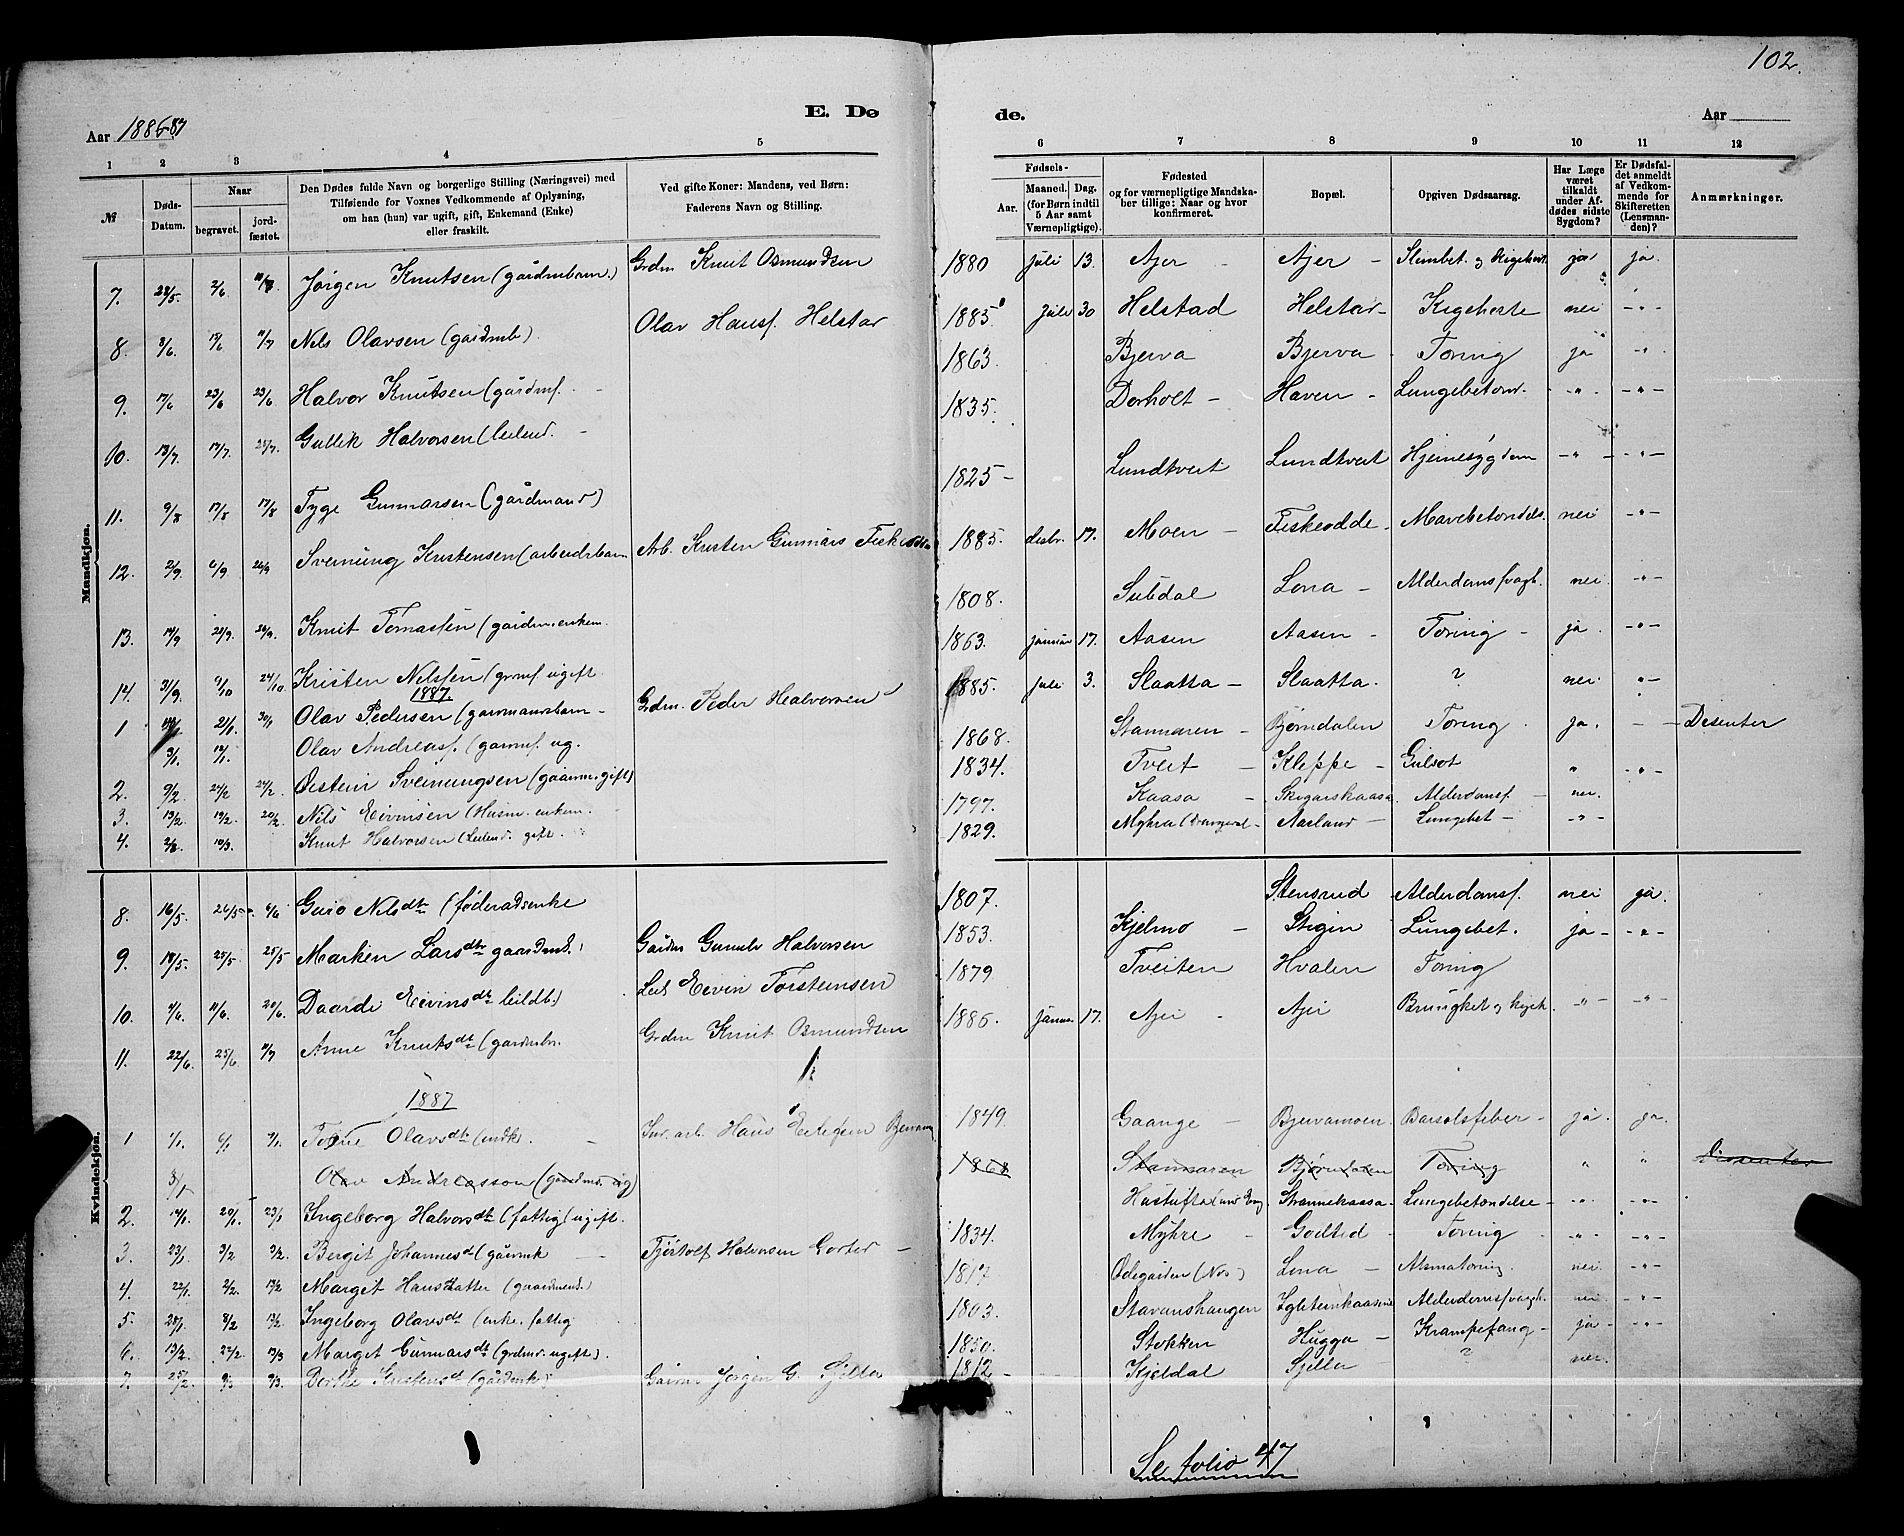 102.
E. Dø de.
Aar 1886-87
Aar
1 2 3 4 5 6 7 8 9 10 11 12
№
Døds-Datum.
Naar begravet. jordfæstet.
Den Dødes fulde Navn og borgerlige Stilling (Næringsvei) med Tilføiende for Voxnes Vedkommende af Oplysning, om han (hun) var ugift, gift, Enkemand (Enke) eller fraskilt.
Ved gifte Koner: Mandens, ved Børn: Faderens Navn og Stilling.
Fødsels-
Aar. Maaned. Dag. (for Børn indtil 5 Aar samt Værnepligtige).
Fødested og for værnepligtige Mandskaber tillige: Naar og hvor konfirmeret.
Bopæl.
Opgiven Dødsaarsag.
Har Læge været tilkaldt under Afdødes sidste Sygdom?
Er Dødsfaldet anmeldt af Vedkommende for Skifteretten (Lensmanden)?
Anmærkninger.
Mandkjøn.
7. 28/5. 2/6 Jørgen Knutsen (gårdmbarn.) Grdm Knut Osmundsen 1880 juli 13. Ajer - Ajer - ja ja.
8. 8/6. 11/7 Nils Olavsen (gardmb) Olav Hansf. Helstar 1885 juli 30 Helstad Helstar Kighoste nei -"-
9. 17/6 23/6 23/6 Halvor Knutsen (gårdmf. 1863. Bjerva Bjerva Tæring ja -"-
10. 13/7 17/7. 25/7 Gullik Halvorsen (leilend. 1835. Dorholt - Haven - Lungebetær. -"- -"-
11. 9/8 17/8 17/8 Tyge Gunnarsen (gårdmand) 1825 - Lundtveit Lundtveit Hjernesygdom -"- -"-
12. 2/9. 6/9 26/9 Sveinung Kristensen (arbeidsbarn Arb. Kristen Gunnars Fiskodde 1885. desbr. 17. Moen - Fiskeodde - Mavebetændels. nei -"-
13. 14/9 20/9. 26/9. Knut Tomassen (gårdm. enkem. 1808. Subdal Lona - Alderdomssvagh. nei. -"-
14. 31/9 6/10 24/10. Kristen Nilssen (grmf. ugift. 1863. januar 17. Aasen Aasen - Tæring - ja. -"-
1887.
1 21/1. 30/1 Olav Pedersen (garmansbarn - Grdm. Peder Halvorsen 1885. juli 3. Slaatta - Slaatta. ? nei -"-
3/1. 12/1. Olav Andreasf. (garmf. ug. 1868. Stamnaren - Bjørndalen Tæring. ja. - Disenter
2. 9/2 24/2 24/2. Øistein Sveinungsen (gaarm. gift) 1834. Tveit - Kleppe - Gulsot " -"-
3. 13/2. 19/2. 20/2 Nils Eivinsen (Husm. enkem. 1797. Kaasa - Skogarskaasa Alderdomsf. - nei.
4. 2/3. 10/3. Knut Halvorsen (Leilend. gift. 1829. Myhra Aarland - Lungebet - -"-
Kvindekjøn.
8. 16/5. 26/5- 6/6 Guro Nilsdtr (føderadsenke 1807. Stensrud Alderdomsf. nei ja.
9. 18/5. 25/5 25/5 Marken Larsdtr gaardmk. Gårdm Gunulv Halvorsen 1853. Kjelmo - Stigin Lungebet. ja - -"-
10. 4/6. 11/6. 20/6. Daarde Eivinsdt leildb.) Leil Eivin Torsteinsen 1879 Tveiten Hvalen Tæring
11. 22/6. 25/6 11/7 Anne Knutsdt (gardmbr. Grdm Knut Osmundsen 1886. januar 17. Ajer - Ajer -"- -"-
1887
1 1/1. 6/1. 9/1. Tone Olavsdt (indk. - Inr. arb. Hans 1849. Gaange - Bjervamoen. Barselsfeber - ja. ja
3/1 Olav Andreasson (gaardmd. ug) 1868 Stamnaren Bjørndalen Tæring " " Dissenter
2. 14/1. 20/1. 23/1 Ingeborg Halvorsdt (fattig) ugift. Strannekaasa - Lungebetændelse - -"- -"-
3. 23/1 3/2 3/2. Bergit Johannesd (gårmk - Tjøstolf Halvorsen Gorter - 1834. Myhre - Godted - Tæring. -"- -"-
4. 22/1. 2/2. 13/2 Margit Hansdatter (gaardmend.) 1817 Ødegården (Nes) Lona - nei. -"-
5. 28/1. 8/2 13/2. Ingeborg Olavsdt (enke. fattig 1803. Stavanshaugen Alderdomsfvagh. nei -"-
6. 13/2. 22/2. 13/3 Marget Gunnarsdt (grdmd. ugift). 1850. Stokken Hugga - Krampefang - ja - -"-
7. 25/2 9/3 9/3. Dorthe Kristensd (gårdmk.) Gårm. Jørgen G. Sjella 1812 - Kjeldal Sjella ? nei.
Se folio 47